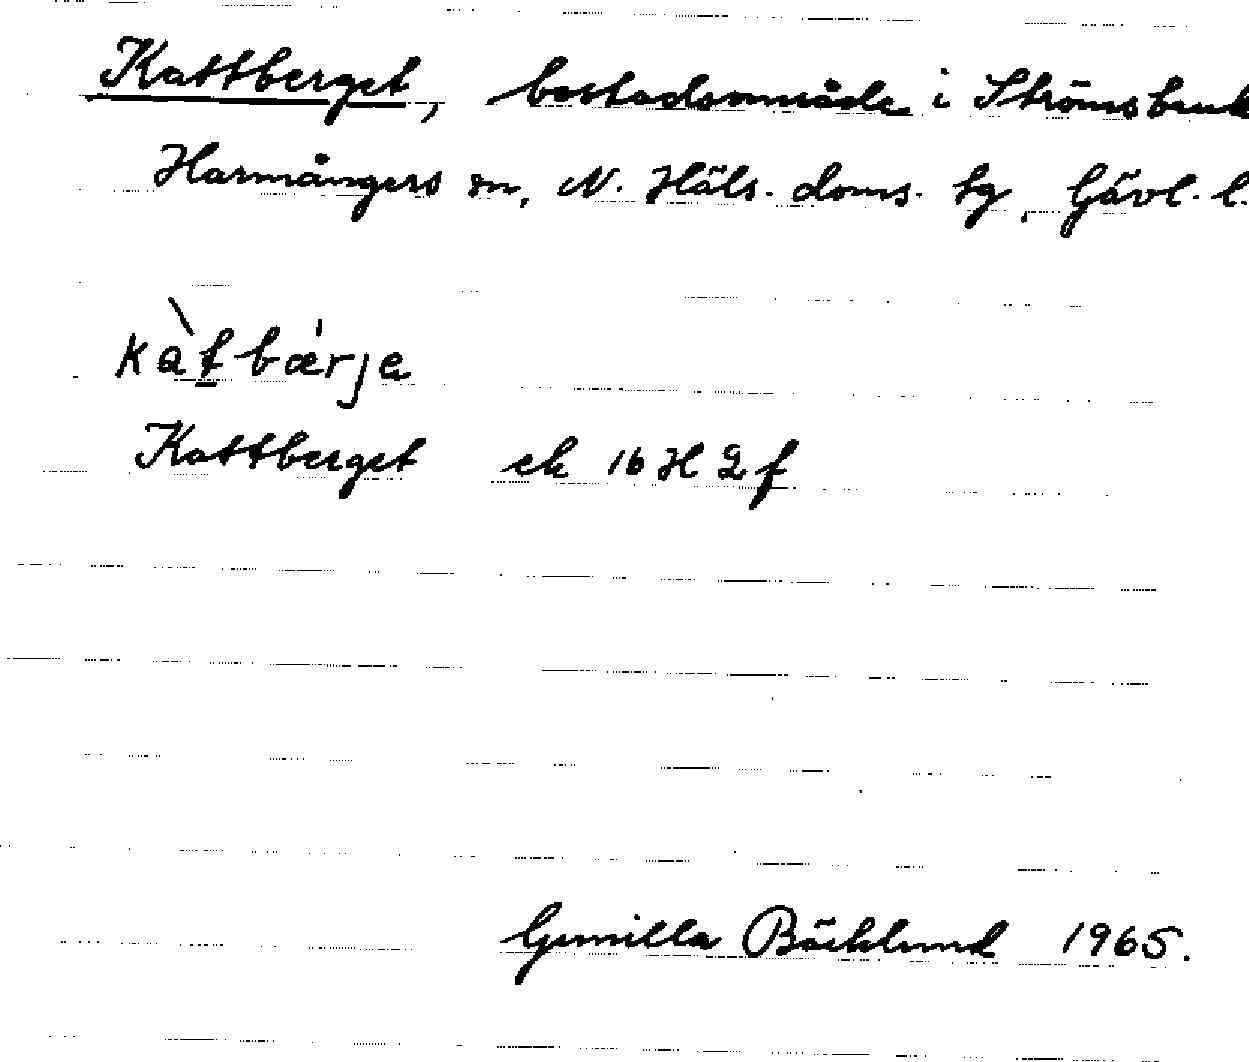 Kattberget, bostadsområde i Strömsbruk
Harmångers sn, N. Häls. doms. tg, Gävl. l.
kàt̲bærja
Kattberget ek 16 H 2 f
Gunilla Bäcklund 1965.